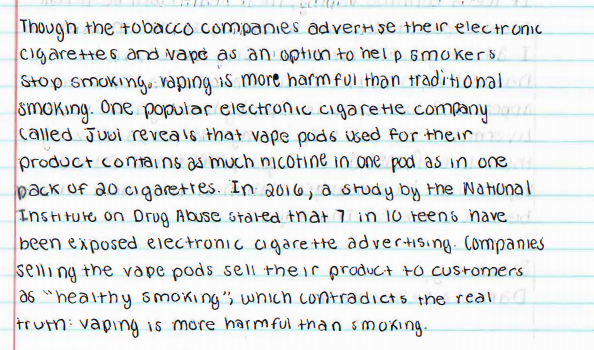 Though the tobacco companies advertise their electronic
cigarettes and vape as an option to help smokers
stop smoking, vaping is more harmful than traditional
smoking. One popular electronic cigarette company
called Juul reveals that vape pods used for their
product contains as much nicotine in one pod as in one
pack of 20 cigarettes. In 2016, a study by the National
Institute on Drug Abuse stated that 7 in 10 teens have
been exposed electronic cigarette advertising. Companies
selling the vape pods sell their product to customers
as "healthy smoking", which contradicts the real
truth: vaping is more harmful than smoking.